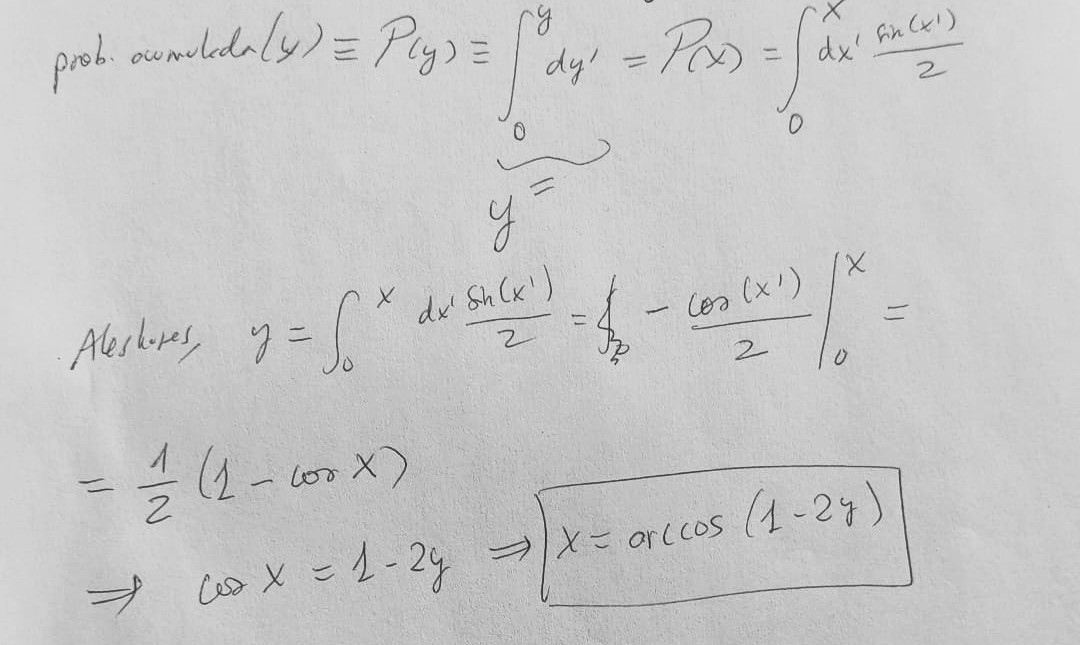 prob. acumulada(y) ≡ P(y) ≡ ∫₀^y dy' = P(x) = ∫₀^x dx' sin(x')/2
y =
Aleshores, y = ∫₀^x dx' sin(x')/2 = - cos(x')/2 |₀^x =
= 1/2 (1 - cos x)
⇒ cos x = 1 - 2y ⇒ x = arccos (1 - 2y)